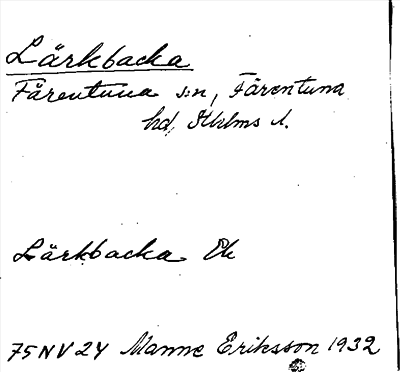 Lärkbacka
Färentuna s:n, Färentuna
hd, Sthlms l.
Lärkbacka Ek
75NV24 Manne Eriksson 1932